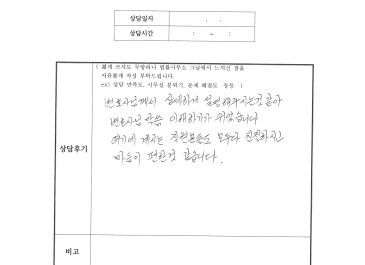 상담일자 . .
상담시간 : ~ :
( 짧게 쓰셔도 무방하니 법률사무소 그날에서 느끼신 점을
자유롭게 작성 부탁드립니다.
ex) 상담 만족도, 사무실 분위기, 문제 해결도 등등 )
변호사님께서 상세하게 설명해주시는것 같아
변호사님 말씀 이해하기가 쉬웠습니다
여기에 계시는 직원분들도 모두다 친절하시고
마음이 편한것 같습니다.
상담후기
비고